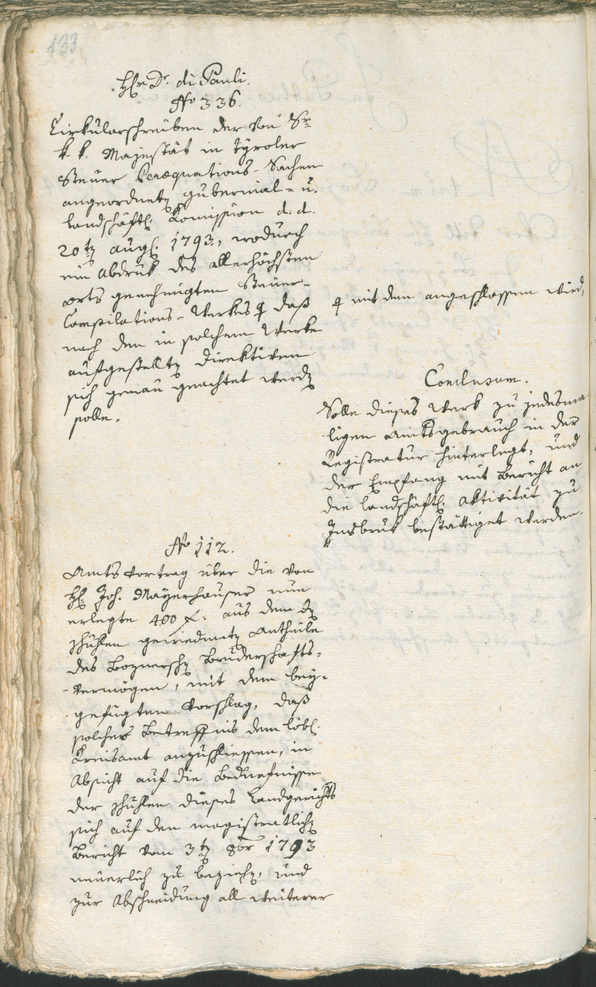 133
Hr. Dr. di Pauli.
No 336.
Cirkularschreiben der von Sr
k. k. Majestät in Tyroler
Steuer Peræquations-Sachen
angeordnetn gubernial- u.
landschäftl. Komission d. d.
20tn aug. 1793, wodurch
ein Abdruk des allerhöchsten
orts genehmigten Steuer-
Compilations-Werkes daß
nach den in solchem Werke
aufgestelltn Direktiven
sich genau geachtet werdn
solle.
mit dem angeschlossen wird,
Conclusum.
Solle dieses Werk zu jedesma-
ligen Amtsgebrauch in der
Registratur hinterlegt, und
der Empfang mit Bericht an
die landschäftl. Aktivität zu
Insbruk bestättiget werden.
No 112.
Amtsvortrag über die von
H. Joh. Mayrhauser nun
erlegte 400 f. aus dem dn
Schulen gewiedmetn Antheile
des Boznerschn Bruderschafts-
vermögen, mit dem bey-
gefügten Vorschlag, daß
solches Betreffnis dem löbl.
Kreisamt anzuschliessen, in
Absicht auf die Bedürfnisse
der Schulen dieses Landgerichts
sich auf den magistratlichn
Bericht vom 3tn 8br 1793
neuerlich zu beziehn, und
zur Abschneidung all weiterer